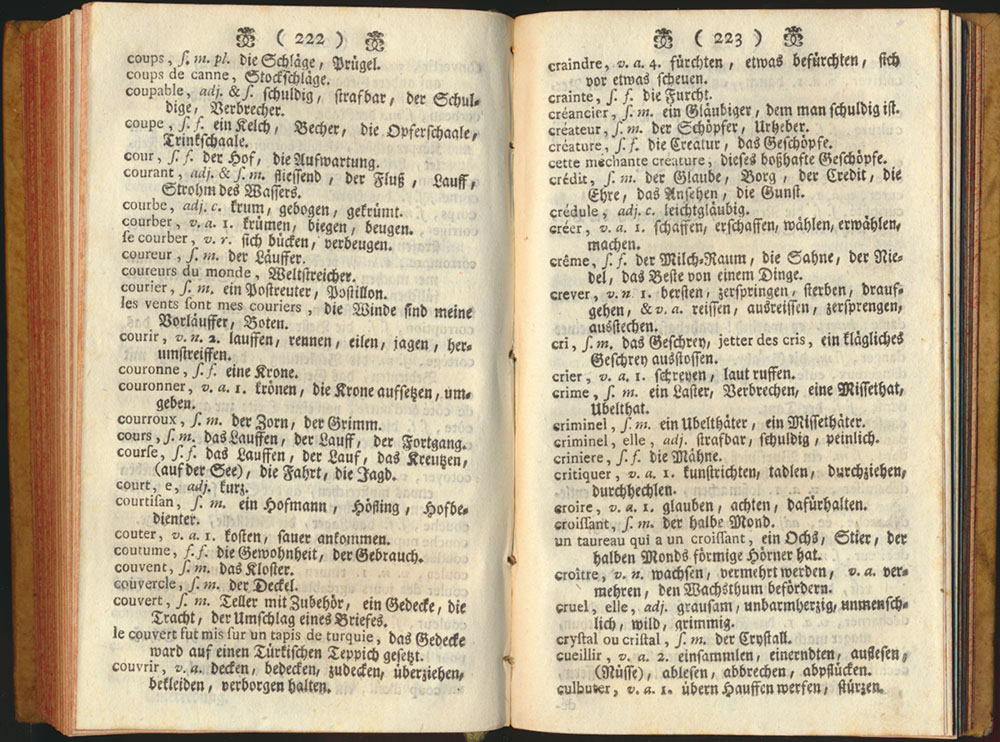 ( 222 )
coups, ſ. m. pl. die Schläge, Prügel.
coups de canne, Stockſchläge.
coupable, adj. & ſ. ſchuldig, ſtrafbar, der Schul-
dige, Verbrecher.
coupe, ſ. f. ein Kelch, Becher, die Opferſchaale,
Trinkſchaale.
cour, ſ. f. der Hof, die Aufwartung.
courant, adj. & ſ. m. flieſſend, der Fluß, Lauff,
Strohm des Waſſers.
courbe, adj. c. krum, gebogen, gekrümt.
courber, v. a. 1. krümen, biegen, beugen.
ſe courber, v. r. ſich bücken, verbeugen.
coureur, ſ. m. der Läuffer.
coureurs du monde, Weltſtreicher.
courier, ſ. m. ein Poſtreuter, Poſtillon.
les vents ſont mes couriers, die Winde ſind meine
Vorläuffer, Boten.
courir, v. n. 2. lauffen, rennen, eilen, jagen, her-
umſtreiffen.
couronne, ſ. f. eine Krone.
couronner, v. a. 1. krönen, die Krone aufſetzen, um-
geben.
courroux, ſ. m. der Zorn, der Grimm.
cours, ſ. m. das Lauffen, der Lauff, der Fortgang.
courſe, ſ. f. das Lauffen, der Lauf, das Kreutzen,
(auf der See), die Fahrt, die Jagd.
court, e, adj. kurz.
courtiſan, ſ. m. ein Hofmann, Höfling, Hofbe-
dienter.
couter, v. a. 1. koſten, ſauer ankommen.
coutume, ſ. f. die Gewohnheit, der Gebrauch.
couvent, ſ. m. das Kloſter.
couvercle, ſ. m. der Deckel.
couvert, ſ. m. Teller mit Zubehör, ein Gedecke, die
Tracht, der Umſchlag eines Briefes.
le couvert fut mis ſur un tapis de turquie, das Gedecke
ward auf einen Türkiſchen Teppich geſetzt.
couvrir, v. a. decken, bedecken, zudecken, überziehen,
bekleiden, verborgen halten.
( 223 )
craindre, v. a. 4. fürchten, etwas befürchten, ſich
vor etwas ſcheuen.
crainte, ſ. f. die Furcht.
créancier, ſ. m. ein Gläubiger, dem man ſchuldig iſt.
créateur, ſ. m. der Schöpfer, Urheber.
créature, ſ. f. die Creatur, das Geſchöpfe.
cette méchante créature, dieſes boßhafte Geſchöpfe.
crédit, ſ. m. der Glaube, Borg, der Credit, die
Ehre, das Anſehen, die Gunſt.
crédule, adj. c. leichtgläubig.
créer, v. a. 1. ſchaffen, erſchaffen, wählen, erwählen,
machen.
crême, ſ. f. der Milch-Raum, die Sahne, der Nie-
del, das Beſte von einem Dinge.
crever, v. n. 1. berſten, zerſpringen, ſterben, drauf-
gehen, & v. a. reiſſen, ausreiſſen, zerſprengen,
ausſtechen.
cri, ſ. m. das Geſchrey, jetter des cris, ein klägliches
Geſchrey ausſtoſſen.
crier, v. a. 1. ſchreyen, laut ruffen.
crime, ſ. m. ein Laſter, Verbrechen, eine Miſſethat,
Ubelthat.
criminel, ſ. m. ein Ubelthäter, ein Miſſethäter.
criminel, elle, adj. ſtrafbar, ſchuldig, peinlich.
criniere, ſ. f. die Mähne.
critiquer, v. a. 1. kunſtrichten, tadlen, durchziehen,
durchhechlen.
croire, v. a. 1. glauben, achten, dafürhalten.
croiſſant, ſ. m. der halbe Mond.
un taureau qui a un croiſſant, ein Ochs, Stier, der
halben Monds förmige Hörner hat.
croître, v. n. wachſen, vermehrt werden, v. a. ver-
mehren, den Wachsthum befördern.
cruel, elle, adj. grauſam, unbarmherzig, unmenſch-
lich, wild, grimmig.
cryſtal ou criſtal, ſ. m. der Cryſtall.
cueillir, v. a. 2. einſammlen, einerndten, aufleſen,
(Nüſſe), ableſen, abbrechen, abpflücken.
culbuter, v. a. 1. übern Hauffen werfen, ſtürzen.
de-